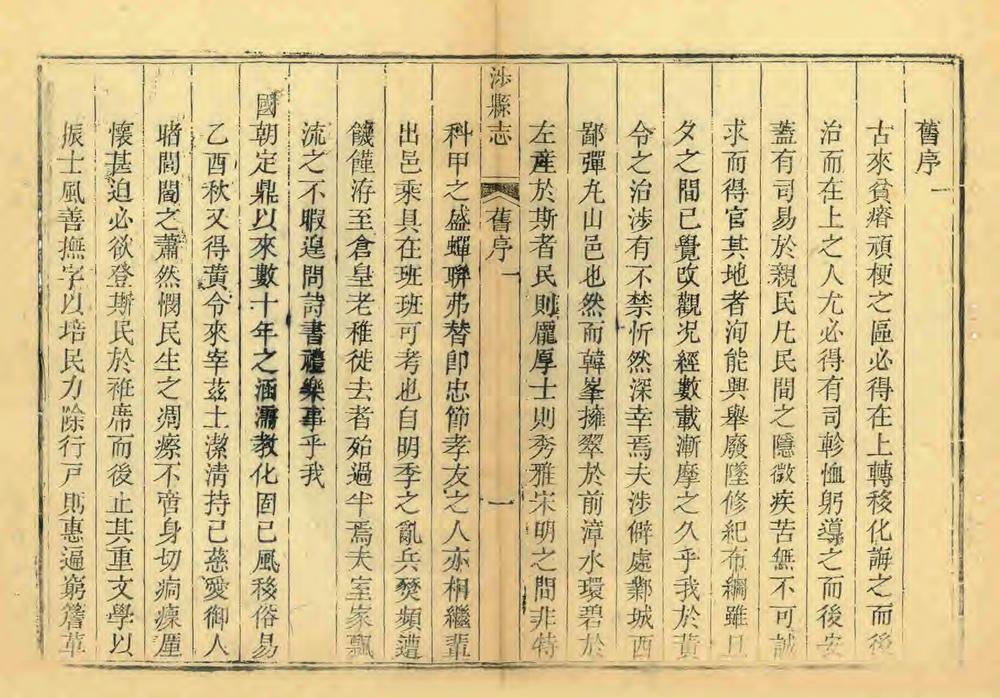 舊序
古來貧瘠頑梗之區必得在上轉移化誨之而後
治而在上之人尤必得有司軫恤躬導之而後安
蓋有司易於親民凡民間之隱微疾苦無不可誠
求而得官其地者洵能興舉廢墜修紀布綱雖旦
夕之間已覺改觀况經數載漸摩之久乎我於黃
令之治涉有不禁忻然深幸焉夫涉僻處鄴城西
鄙彈丸山邑也然而韓峯擁翠於前漳水環碧於
左產於斯者民則龐厚士則秀雅宋明之間非特
涉縣志
舊序
一
科甲之盛蟬聯弗替卽忠節孝友之人亦相繼輩
出邑乘具在班班可考也自明季之亂兵燹頻遭
饑饉洊至倉皇老稚徙去者殆過半焉夫室家飄
流之不暇遑問詩書禮樂事乎我
國朝定鼎以來數十年之涵濡教化固已風移俗易
乙酉秋又得黃令來宰茲土潔清持己慈愛御人
睹閭閻之蕭然憫民生之凋瘵不啻身切痌瘝厪
懷甚迫必欲登斯民於袵席而後止其重文學以
振士風善撫字以培民力除行戶則惠遍窮簷革